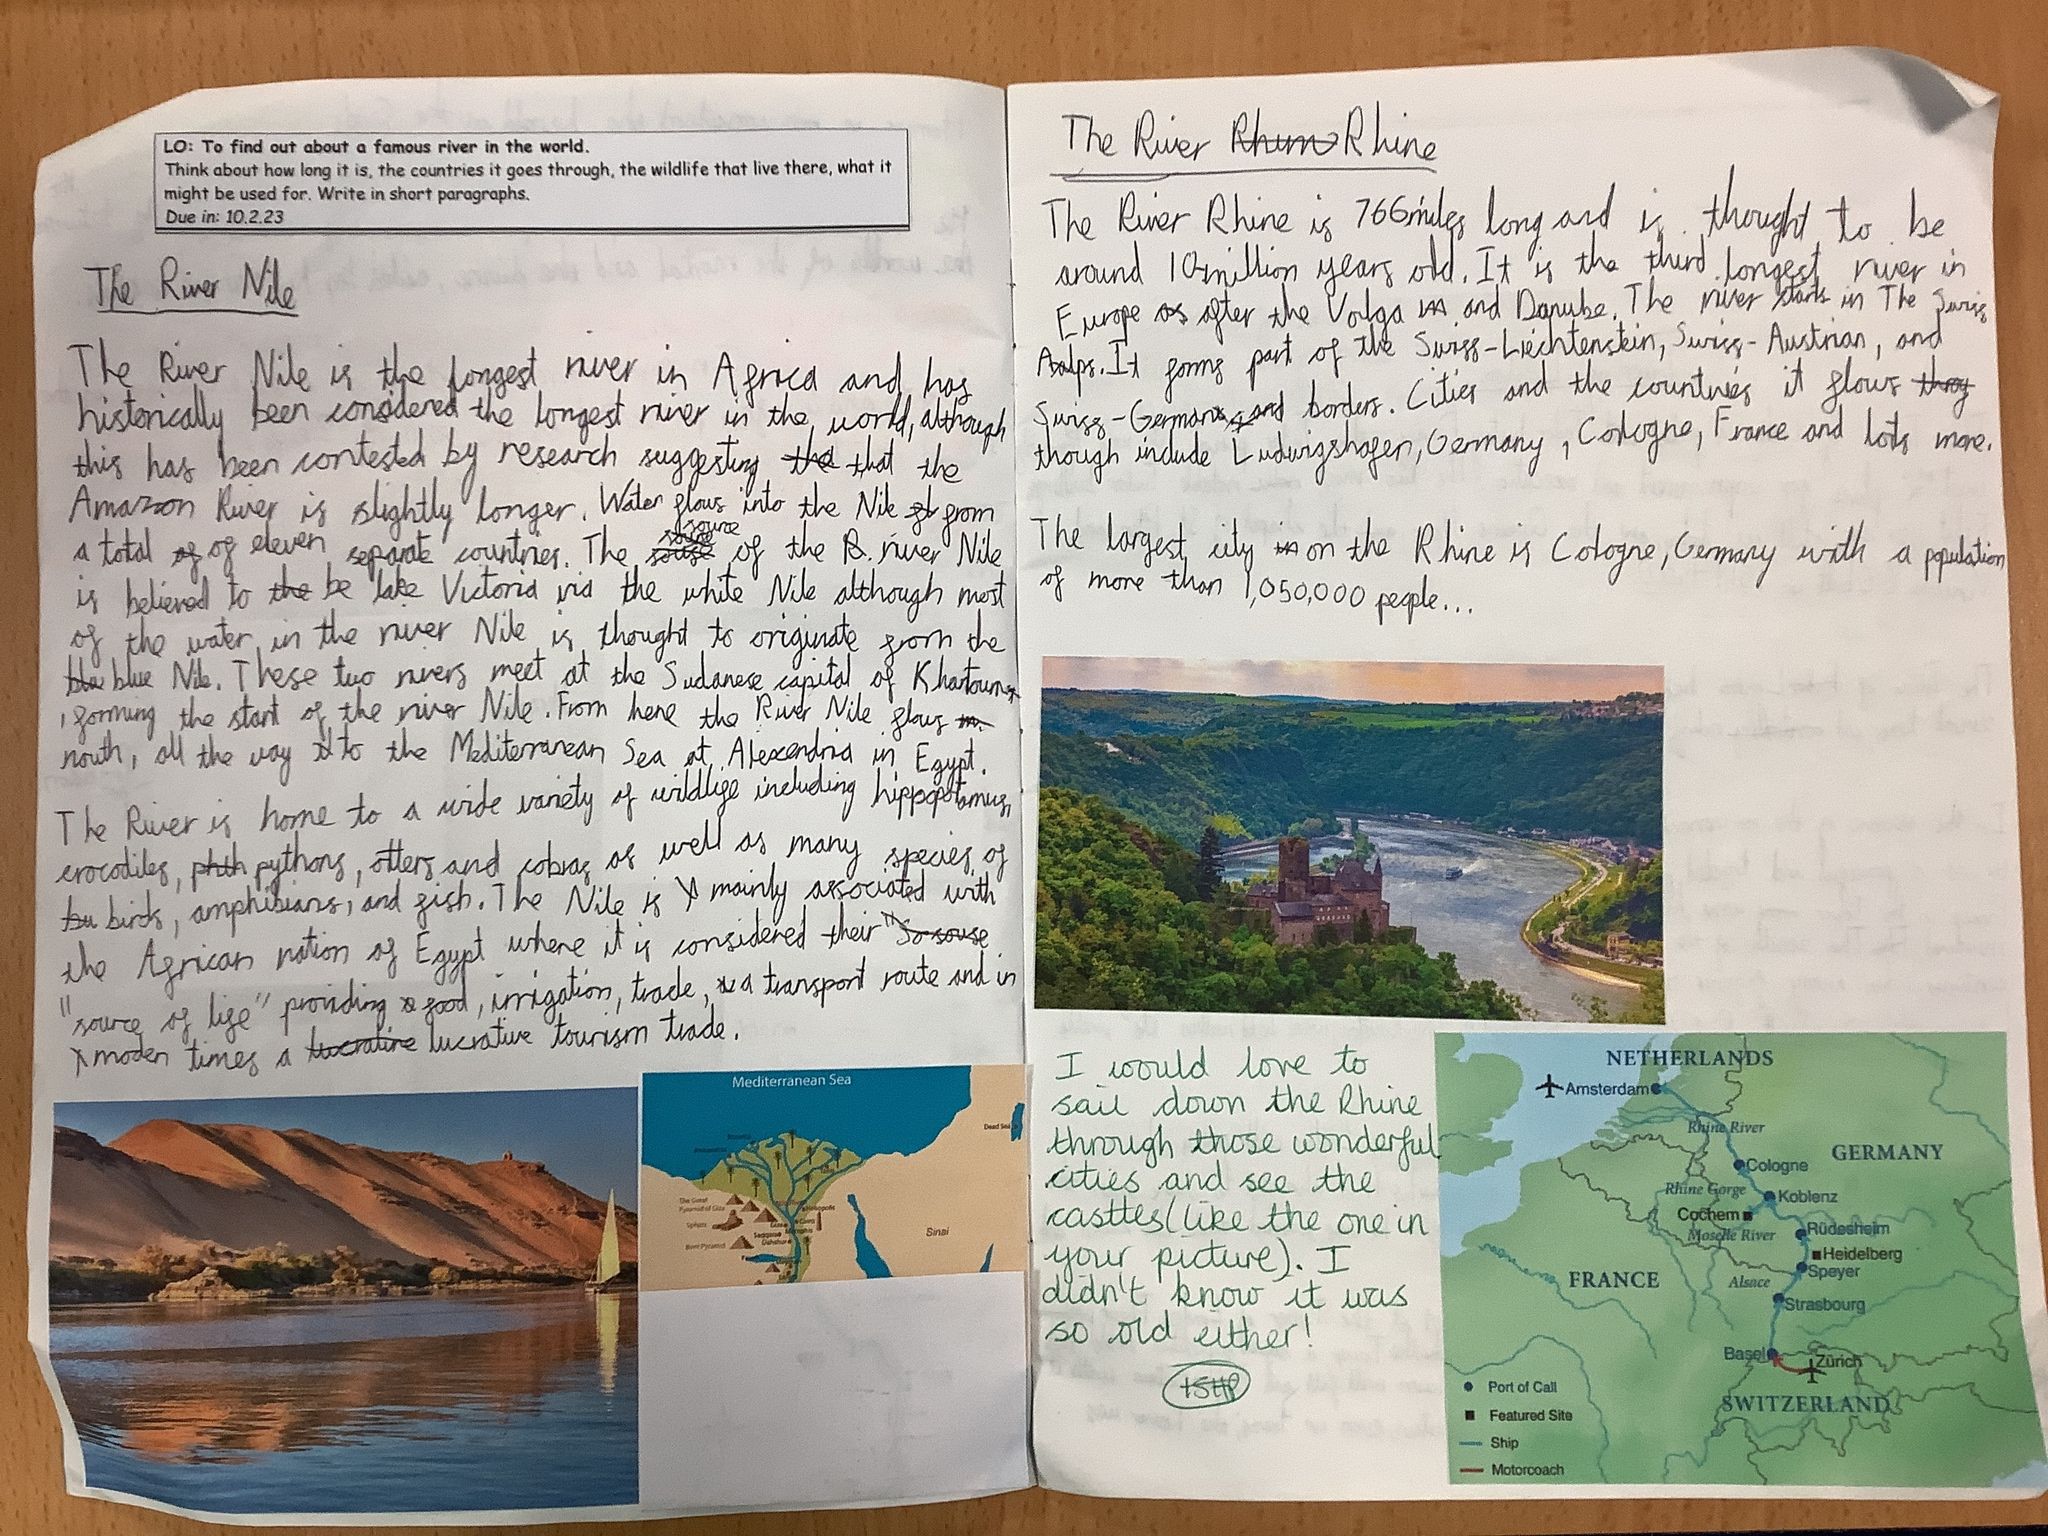 LO: To find out about a famous river in the world.
Think about how long it is, the countries it goes through, the wildlife that live there, what it
might be used for. Write in short paragraphs.
Due in: 10.2.23
The River Nile
The River Nile is the longest river in Africa and has
historically been considered the longest river in the world, although
this has been contested by research suggesting the that the
Amazon River is slightly longer. Water flows into the Nile from
a total of of eleven separate countries. The source of the R. river Nile
is believed to the be lake Victoria via the white Nile although most
of the water in the river Nile is thought to originate from the
blu blue Nile. These two rivers meet at the Sudanese capital of Khartoum
, forming the start of the river Nile. From here the River Nile flows in
north, all the way to the Mediterranean Sea at Alexendria in Egypt.
The River is home to a wide variety of wildlife including hippopotamus,
crocodiles, phth pythons, otters and cobras as well as many species of
bu birds, amphibians, and fish. The Nile is mainly associated with
the African nation of Egypt where it is considered their "So souse
"source of life" providing food, irrigation, trade, a transport route and in
moden times a lucratine lucrative tourism trade.
Mediterranean Sea
Dead Sea
The Great
Pyramid of Giza
Sphinx
Saqqara
Dahshur
Bent Pyramid
Sinai
The River Rhine
The River Rhine is 766miles long and is thought to be
around 10million years old. It is the third longest river in
Europe as after the Volga in and Danube. The river starts in The Swiss
Aalps. It forms part of the Swiss-Liechtenskin, Swiss-Austrian, and
Swiss-German and borders. Cities and the countries it flows throy
though include Ludwigshafen, Germany, Cologne, France and lots more.
The largest city in on the Rhine is Cologne, Germany with a population
of more than 1,050,000 people...
I would love to
sail down the Rhine
through those wonderful
cities and see the
castles (like the one in
your picture). I
didn't know it was
so old either!
NETHERLANDS
Amsterdam
Rhine River
GERMANY
Cologne
Rhine Gorge
Koblenz
Cochem
Moselle River
Rüdesheim
Heidelberg
FRANCE
Alsace
Speyer
Strasbourg
Basel
Zürich
SWITZERLAND
Port of Call
Featured Site
Ship
Motorcoach